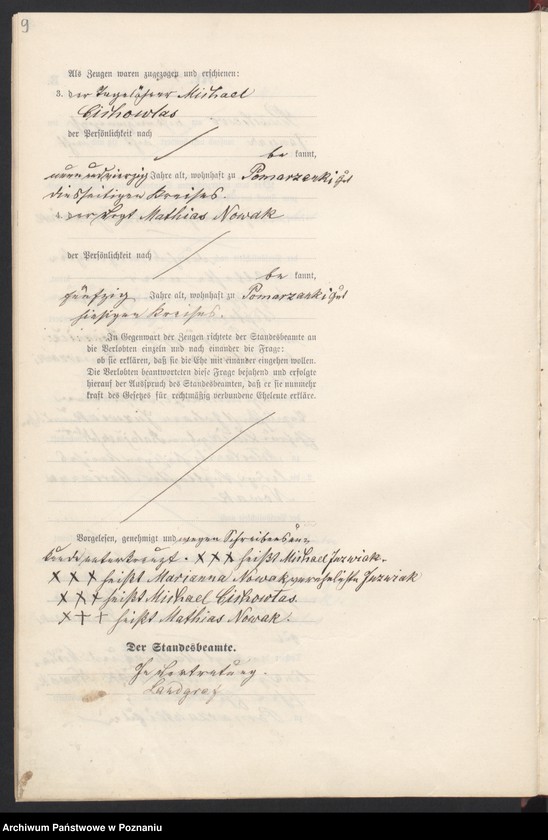 9
Als Zeugen waren zugezogen und erschienen:
3. der Tagelöhner Michael
Cichowlas
der Persönlichkeit nach
be kannt,
neunundvierzig Jahre alt, wohnhaft zu Pomarzanki Gut
diesseitigen Kreises.
4. der Vogt Mathias Nowak
der Persönlichkeit nach
be kannt,
fünfzig Jahre alt, wohnhaft zu Pomarzanki Gut
hiesigen Kreises.
In Gegenwart der Zeugen richtete der Standesbeamte an
die Verlobten einzeln und nach einander die Frage:
ob sie erklären, daß sie die Ehe mit einander eingehen wollen.
Die Verlobten beantworteten diese Frage bejahend und erfolgte
hierauf der Ausspruch des Standesbeamten, daß er sie nunmehr
kraft des Gesetzes für rechtmäßig verbundene Eheleute erkläre.
Vorgelesen, genehmigt und wegen Schreibensun-
kunde unterkreuzt. XXX heißt Michael Juzwiak.
XXX heißt Marianna Nowak, verehelichte Juzwiak
XXX heißt Michael Cichowlas.
XXX heißt Mathias Nowak.
Der Standesbeamte.
In Vertretung.
Landgraf
Archiwum Państwowe w Poznaniu